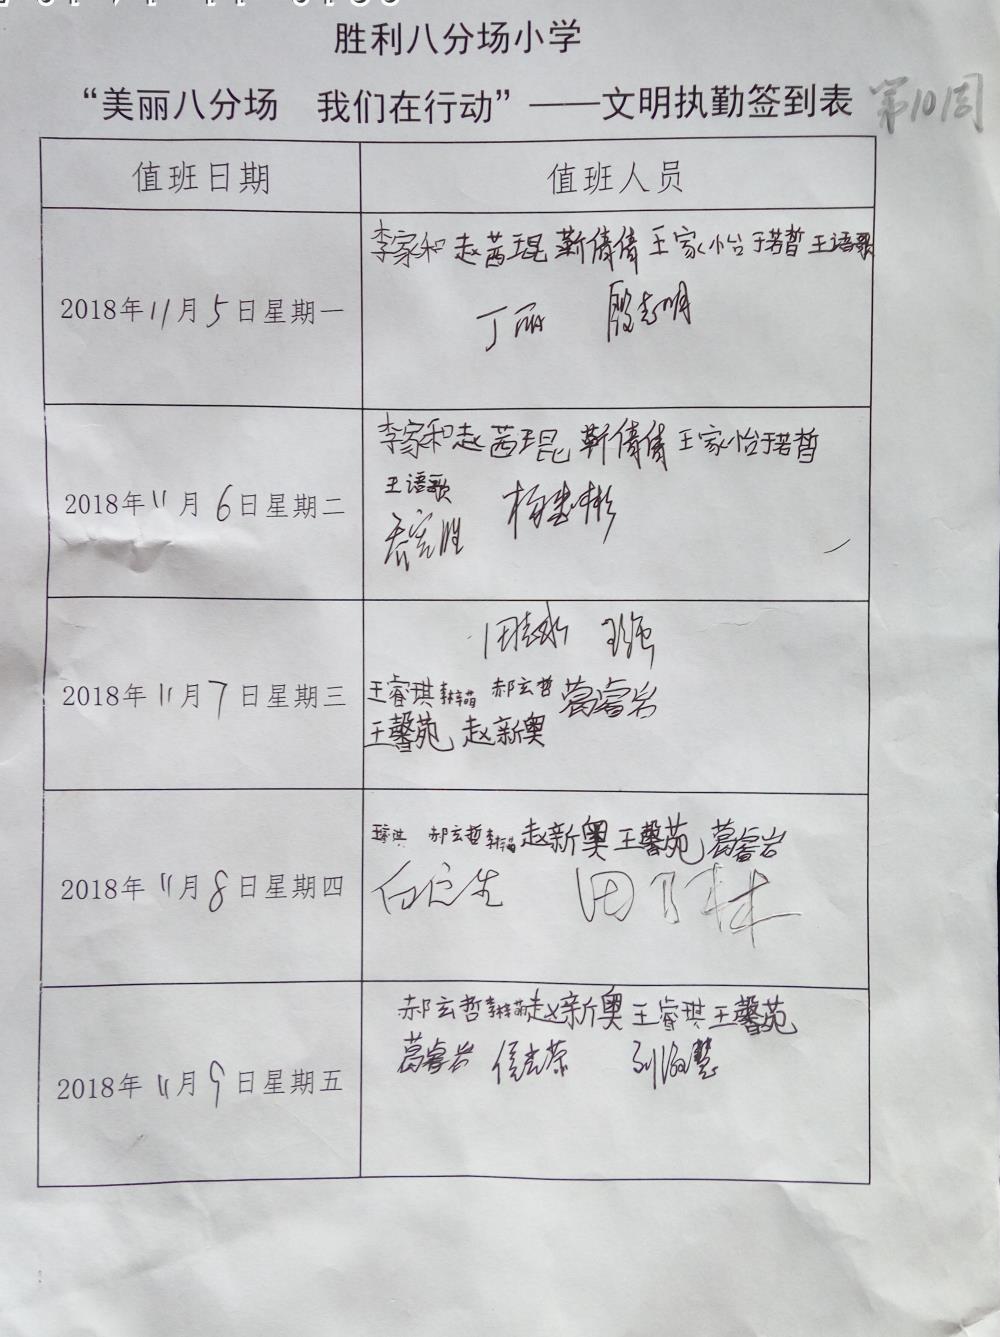 胜利八分场小学
“美丽八分场 我们在行动”——文明执勤签到表 第10周
值班日期 值班人员
李家和 赵茜琨 靳倩倩 王家怡 于若晢 王语歌
2018年11月5日星期一
丁丽 殷志明
李家和 赵茜琨 靳倩倩 王家怡 于若晢
王语歌
2018年11月6日星期二
王强
2018年11月7日星期三
王睿琪 郝玄哲 葛睿岩
王馨苑 赵新奥
郝玄哲 赵新奥 王馨苑 葛睿岩
2018年11月8日星期四
郝玄哲 赵新奥 王睿琪 王馨苑
葛睿岩
2018年11月9日星期五